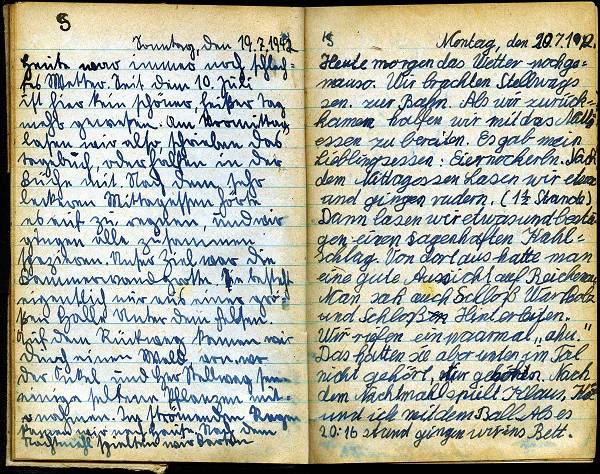 5
Sonntag, den 19.7.1942
Heute war immer noch schlech-
tes Wetter. Seit dem 10. Juli
ist hier kein schöner, heißer Tag
mehr gewesen. Am Vormittag
lasen wir also, schrieben das
Tagebuch, oder halfen in der
Küche mit. Nach dem sehr
leckeren Mittagessen hörte
es auf zu regnen, und wir
gingen alle zusammen
spazieren. Unser Ziel war die
Sie besteht
eigentlich nur aus einer gro-
ßen Halle unter dem Felsen.
Auf dem Rückweg kamen wir
durch einen Wald, wo wir
der Onkel und Herr Stellwag
einige seltene Pflanzen mit-
nahmen. In strömenden Regen
kamen wir nach Hause. Nach dem
Nachtmahl spielten wir Karten
15
Montag, den 20.7.1942.
Heute morgen das Wetter nochge-
nauso. Wir brachten Stellwags
zur Bahn. Als wir zurück-
kamen halfen wir mit das Mittag
essen zu bereiten. Es gab mein
Lieblingsessen: Eiernockerln. Nach
dem Mittagessen lasen wir etwas
und gingen rudern. (1½ Stunde)
Dann lasen wir etwas und bestie
gen einen sagenhaften Kahl-
schlag. Von dort aus hatte man
eine gute Aussicht auf Reichenau
Man sah auch Schloß Wartholz
und Schloß Hinterleiten.
Wir riefen ein paarmal „ahu."
Das hatten sie aber unten im Tal
nicht gehört, Nach
dem Nachtmahl spielt Klaus,
und ich mit dem Ball. Als es
20:16 st und gingen wir ins Bett.